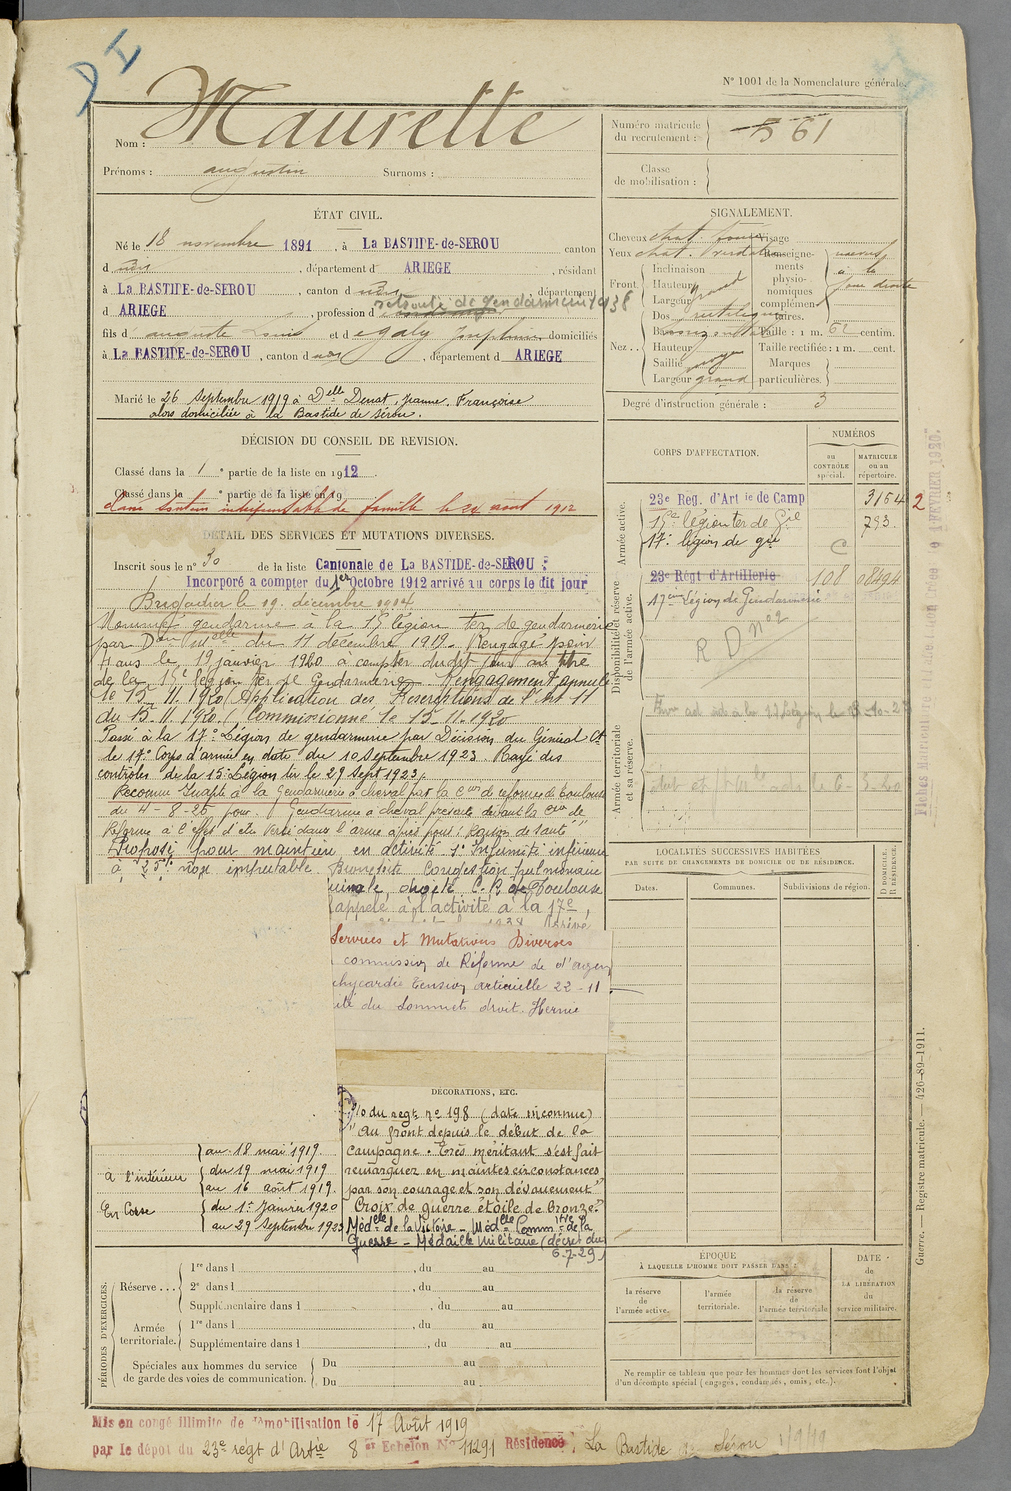 D I
N° 1001 de la Nomenclature générale.
Nom : Maurette
Prénoms : augustin Surnoms :
Numéro matricule du recrutement : 561
Classe de mobilisation :
ÉTAT CIVIL.
Né le 18 novembre 1891, à La BASTIDE-de-SEROU canton
d , département d ARIEGE , résidant
à La BASTIDE-de-SEROU , canton d , département
d ARIEGE , profession d retraité de gendarmerie 1938
fils d' auguste Louis et d' egaly Josephine domiciliés
à La BASTIDE-de-SEROU , canton d , département d ARIEGE
Marié le 26 Septembre 1919 à Delle Denat, Jeanne, Françoise
alors domiciliée à la Bastide de Sérou.
SIGNALEMENT.
Cheveux chat. Visage
Yeux chat. Renseignements physionomiques complémentaires.
Front. Inclinaison
Hauteur
Largeur
Nez . . Dos rectiligne
Base
Hauteur
Saillie moyen
Largeur grand
Taille : 1 m. 62 centim.
Taille rectifiée : 1 m. cent.
Marques particulières.
Degré d'instruction générale : 3
DÉCISION DU CONSEIL DE REVISION.
Classé dans la 1 e partie de la liste en 1912
Classé dans la e partie de la liste en 19
soutien indispensable de famille le 24 août 1912
DÉTAIL DES SERVICES ET MUTATIONS DIVERSES.
Inscrit sous le n° 30 de la liste Cantonale de La BASTIDE-de-SEROU :
Incorporé a compter du 1er Octobre 1912 arrivé au corps le dit jour
Brigadier le 19 décembre 1914
Nommé gendarme à la 15e légion ter de gendarmerie
par Don Mlle du 11 décembre 1919. Rengagé pour
4 ans le 19 janvier 1920 a compter dudit jour au titre
de la 15e légion ter de Gendarmerie. Rengagement annulé
le 15-11-1920 (Application des Prescriptions de l'Art 11
du 15.11.1920). Commissionné le 15-11-1920
Passé à la 17e Légion de gendarmerie par Décision du Général Ct
le 17e Corps d'armée en date du 10 Septembre 1923. Rayé des
contrôles de la 15e Légion ter le 29 Sept 1923.
Reconnu Inapte à la Gendarmerie à cheval par la Con de réforme de Toulouse
du 4-8-25 pour : Gendarme à cheval présenté devant la Con de
Réforme à l'effet d'être versé dans l'arme à pied pour : Raison de santé
Proposé pour maintien en activité 1° Infirmité inférieure
à 25% non imputable. Bronchite Congestion pulmonaire
C.R. de Toulouse
appelé à l'activité à la 17e
Services et Mutations Diverses
commission de Réforme de d'agen
chycardie Tension artérielle 22-11
du Sommet droit. Hernie
CORPS D'AFFECTATION. NUMÉROS
au contrôle spécial. MATRICULE ou au répertoire.
Armée active.
23e Reg. d'Art ie de Camp 3154 2
15e légion ter de Gie 793.
17e légion de gie C
Disponibilité et réserve de l'armée active.
23e Régt d'Artillerie 108 08494
17ème Légion de Gendarmerie
R D n° 2
Armée territoriale et sa réserve.
LOCALITÉS SUCCESSIVES HABITÉES
PAR SUITE DE CHANGEMENTS DE DOMICILE OU DE RÉSIDENCE.
Dates. Communes. Subdivisions de région. D DOMICILE. R RÉSIDENCE.
Guerre. — Registre matricule. — 426-89-1911.
DÉCORATIONS, ETC.
/o du regt n° 198 (date inconnue)
"Au front depuis le début de la
campagne. Très méritant s'est fait
remarquer en maintes circonstances
par son courage et son dévouement"
Croix de guerre étoile de bronze.
Médlle de la Victoire - Médlle Commive de la
Guerre - Médaille Militaire (décret du
6-7-29)
au 18 mai 1919.
à l'intérieur du 19 mai 1919
au 16 août 1919.
En Corse du 1er Janvier 1920
au 29 Septembre 1923
PÉRIODES D'EXERCICES.
Réserve . . . 1re dans l , du au
2e dans l , du au
Supplémentaire dans l , du au
Armée territoriale. 1re dans l , du au
Supplémentaire dans l , du au
Spéciales aux hommes du service de garde des voies de communication. Du au
Du au
ÉPOQUE
À LAQUELLE L'HOMME DOIT PASSER DANS :
la réserve de l'armée active. l'armée territoriale. la réserve de l'armée territoriale
DATE de LA LIBÉRATION du service militaire.
Ne remplir ce tableau que pour les hommes dont les services font l'objet
d'un décompte spécial (engagés, condamnés, omis, etc.).
Mis en congé illimité de démobilisation le 17 Août 1919
par le dépôt du 23e régt d'Artie 8 e Echelon N° 11291 Résidence : La Bastide de Sérou